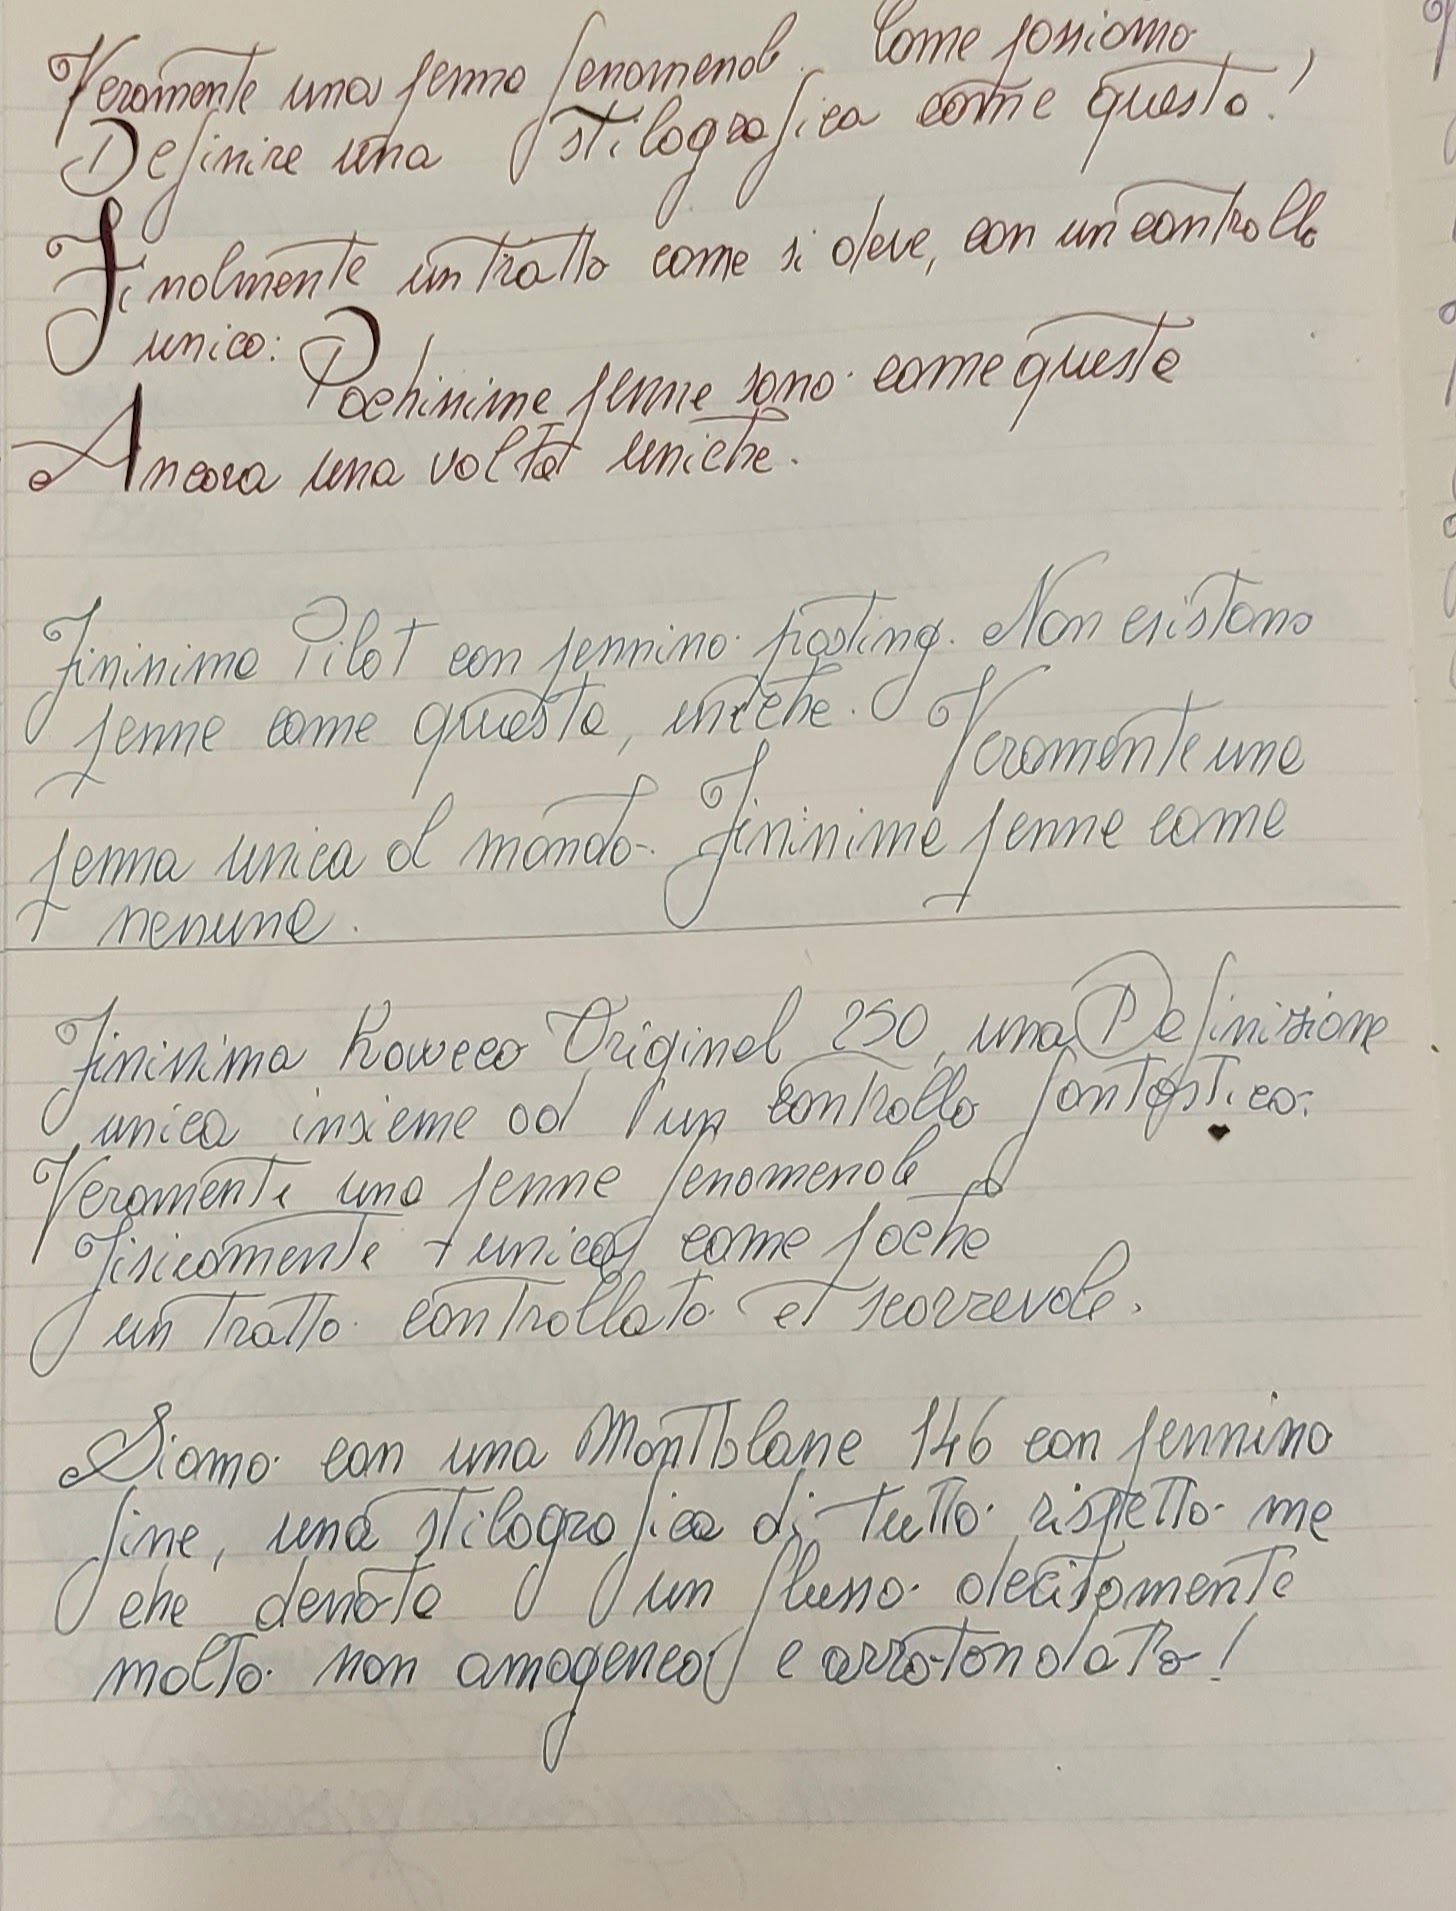 Veramente una penna fenomenale. Come possiamo
Definire una stilografica come questa!
Finalmente un tratto come si deve, con un controllo
unico:
Pochissime penne sono come queste
Ancora una volta uniche.
Finissima Pilot con pennino posting. Non esistono
penne come queste, uniche. Veramente una
penna unica al mondo. Finissime penne come
nessuna.
Finissima Kaweco Original 250, una Definizione
unica insieme ad un controllo fantastico.
Veramente una penne fenomenale
Fisicamente unica come poche
un tratto controllato et scorrevole.
Siamo con una Montblanc 146 con pennino
fine, una stilografica di tutto rispetto me
che denote un flusso decisamente
molto non amogeneo e arrotondato!